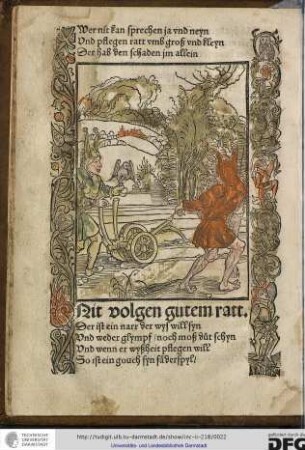 Wer nit kan sprechen ja vnd neyn
Vnd pflegen ratt vmb groß vnd kleyn
Der hab den schaden jm allein
Nit volgen gutem ratt.
Der ist ein narr der wyß will syn
Vnd weder glympf / noch moß důt schyn
Vnd wenn er wyßheit pflegen will
So ist ein gouch syn federspyl /
TECHNISCHE
UNIVERSITÄT
DARMSTADT
http://tudigit.ulb.tu-darmstadt.de/show/inc-ii-218/0022
Universitäts- und Landesbibliothek Darmstadt
gefördert durch die
DFG